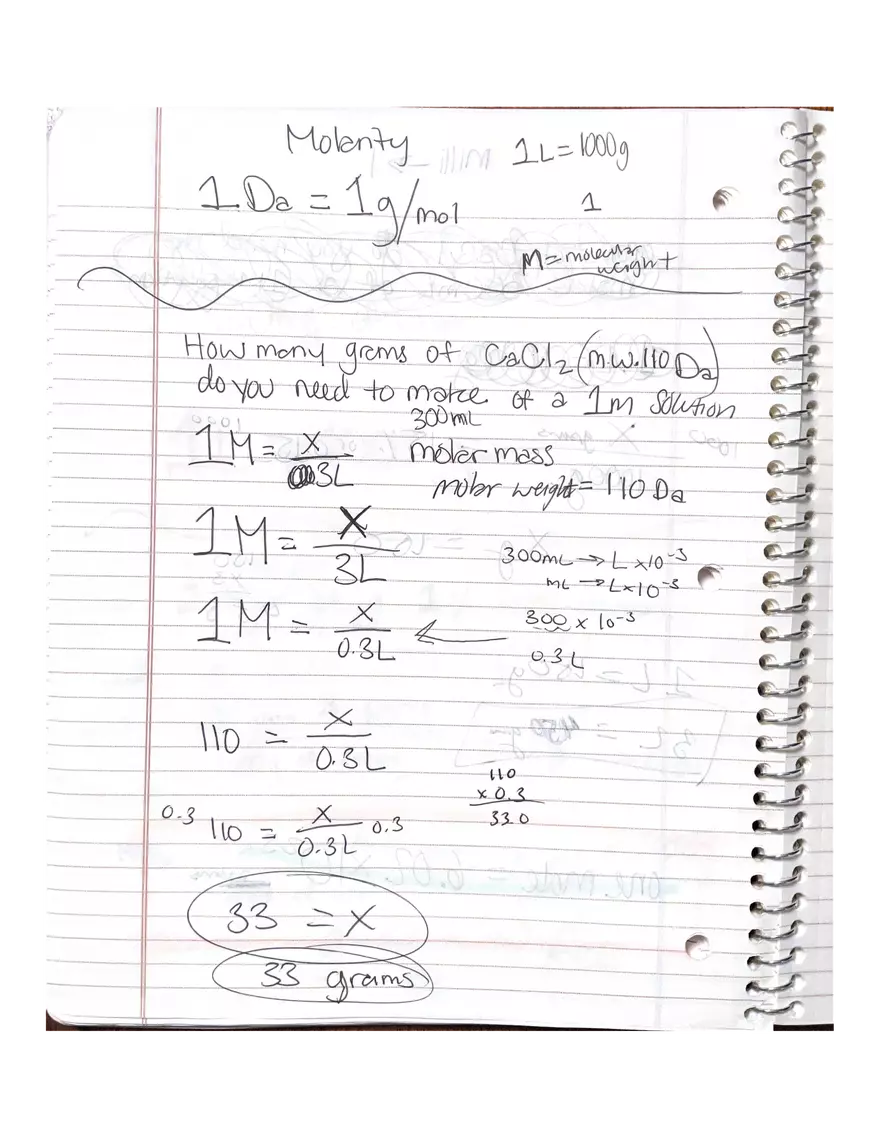 Molarity 1L = 1000g
1 Da = 1g/mol 1
M = molecular weight
How many grams of CaCl2 (m.w. 110 Da)
do you need to make 300mL of a 1m solution
1M = x / 3L molar mass
molar weight = 110 Da
1M = X / 3L 300mL → L x10-3
mL → L x10-3
1M = x / 0.3L ← 300 x 10-3
0.3L
110 = x / 0.3L
110
x 0.3
33.0
0.3 110 = x / 0.3L 0.3
33 = x
33 grams